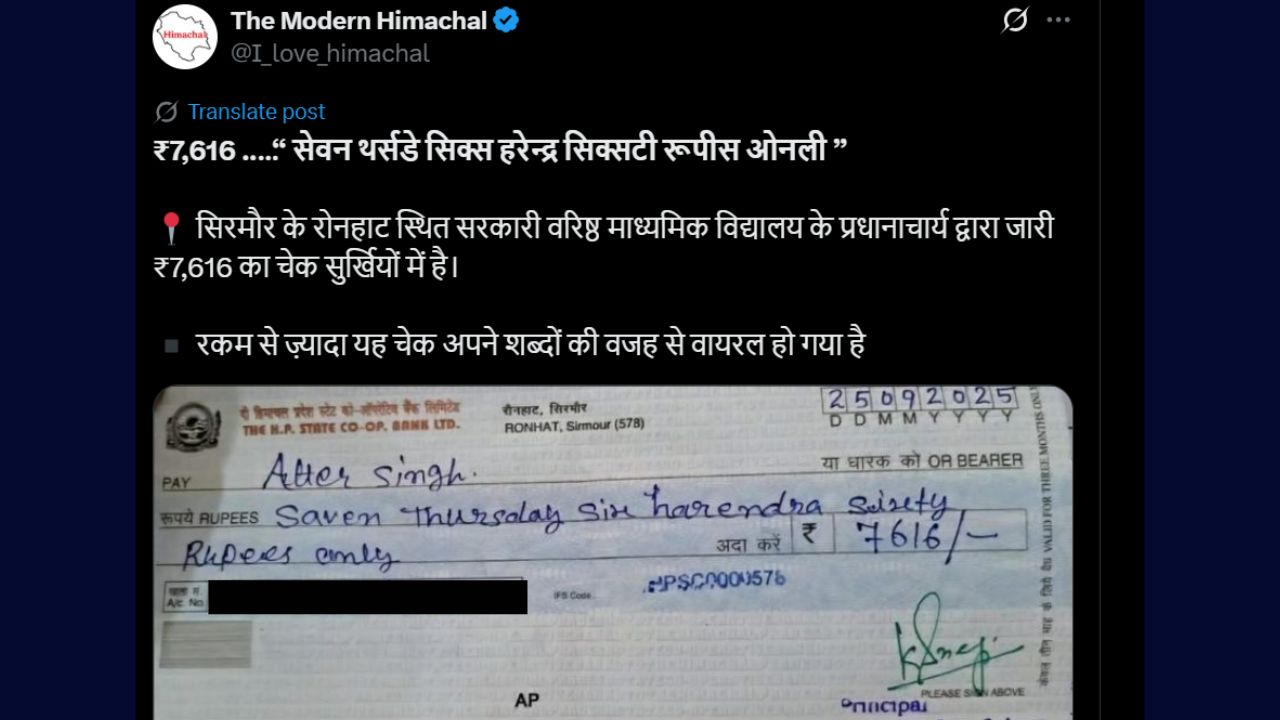 Himachal
The Modern Himachal
@I_love_himachal
Translate post
₹7,616 ....“ सेवन थर्सडे सिक्स हरेन्द्र सिक्सटी रूपीस ओनली ”
📍 सिरमौर के रोनहाट स्थित सरकारी वरिष्ठ माध्यमिक विद्यालय के प्रधानाचार्य द्वारा जारी
₹7,616 का चेक सुर्खियों में है।
▪ रकम से ज़्यादा यह चेक अपने शब्दों की वजह से वायरल हो गया है
दी हिमाचल प्रदेश स्टेट को-ऑपरेटिव बैंक लिमिटेड
THE H.P. STATE CO-OP. BANK LTD.
रौनहाट, सिरमौर
RONHAT, Sirmour (578)
2 5 0 9 2 0 2 5
D D M M Y Y Y Y
PAY Atter Singh.
या धारक को OR BEARER
रूपये RUPEES Saven Thursday Six harendra Sixty
Rupees only
अदा करें ₹ 7616/-
खाता नं.
A/c. No.
IFS Code
केवल तीन माह के लिये वैध VALID FOR THREE MONTHS ONLY
PLEASE SIGN ABOVE
AP
Principal